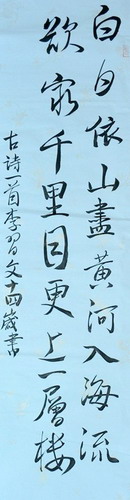 白日依山盡黃河入海流
欲窮千里目更上一層樓
古詩一首李習文十四歲書